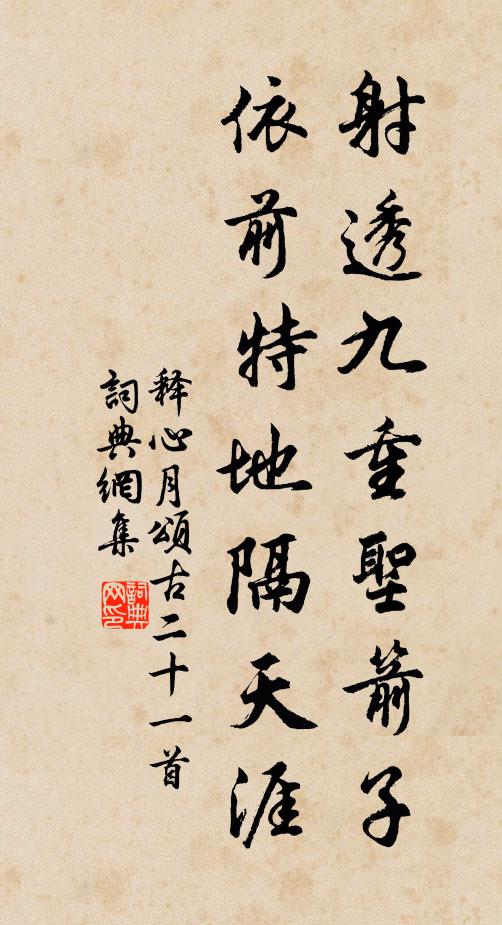 射透九重聖箭子
依前特地隔天涯
释心月頌古二十一首
詞典網集
詞典
网印